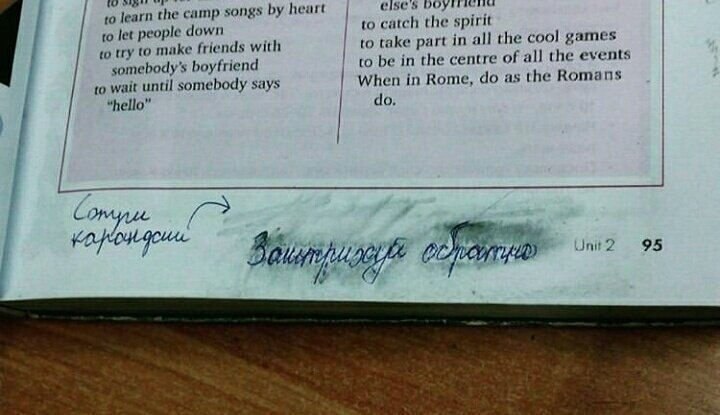 to sign up for
to learn the camp songs by heart
to let people down
to try to make friends with
somebody's boyfriend
to wait until somebody says
"hello"
else's boyfriend
to catch the spirit
to take part in all the cool games
to be in the centre of all the events
When in Rome, do as the Romans
do.
Сотри
карандаш
Заштрихуй обратно
Unit 2 95